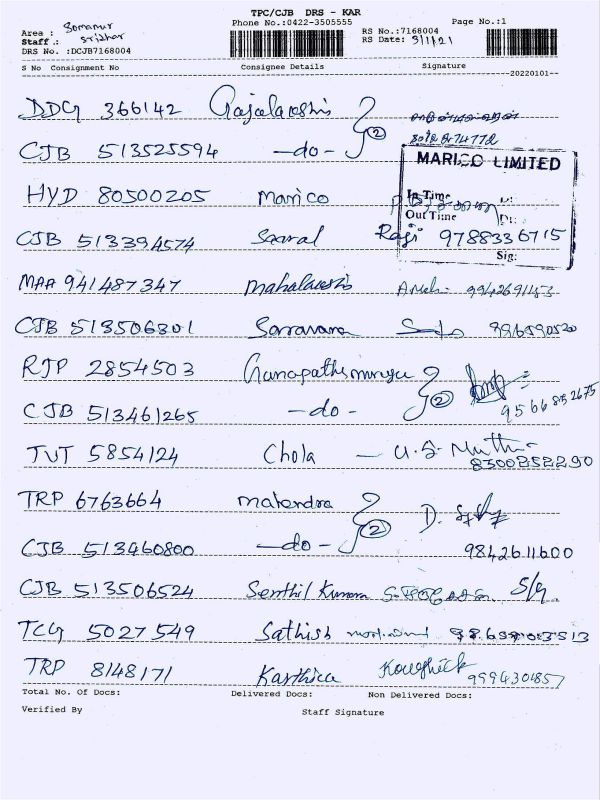 TPC/CJB DRS - KAR
Area : Somanur Phone No.:0422-3505555 RS No.:7168004 Page No.:1
Staff : Sridhar RS Date: 3/1/21
DRS No. :DCJB7168004
S No Consignment No Consignee Details Signature
20220101
DDG 366142 Gajalaxshmi 2
CJB 513525594 -do-
MARICO LIMITED
HYD 80500205 Marico In Time
Out Time Dt:
CJB 513394574 Saaral Raji 9788336715
Sig:
MAA 941487347 Mahalaxshmi 9942691153
CJB 513506301 Saravana
RJP 2854503 Ganapathi murugan 2
CJB 513461265 -do- 9566852675
TUT 5854124 Chola - U.S. Muthu
8300252290
TRP 6763664 Mahendra 2 D.
CJB 513460800 -do- 9842611600
CJB 513506524 Senthil Kumara S/g.
TCG 5027549 Sathish
TRP 8148171 Karthica Kowshick
9994301857
Total No. Of Docs: Delivered Docs: Non Delivered Docs:
Verified By Staff Signature